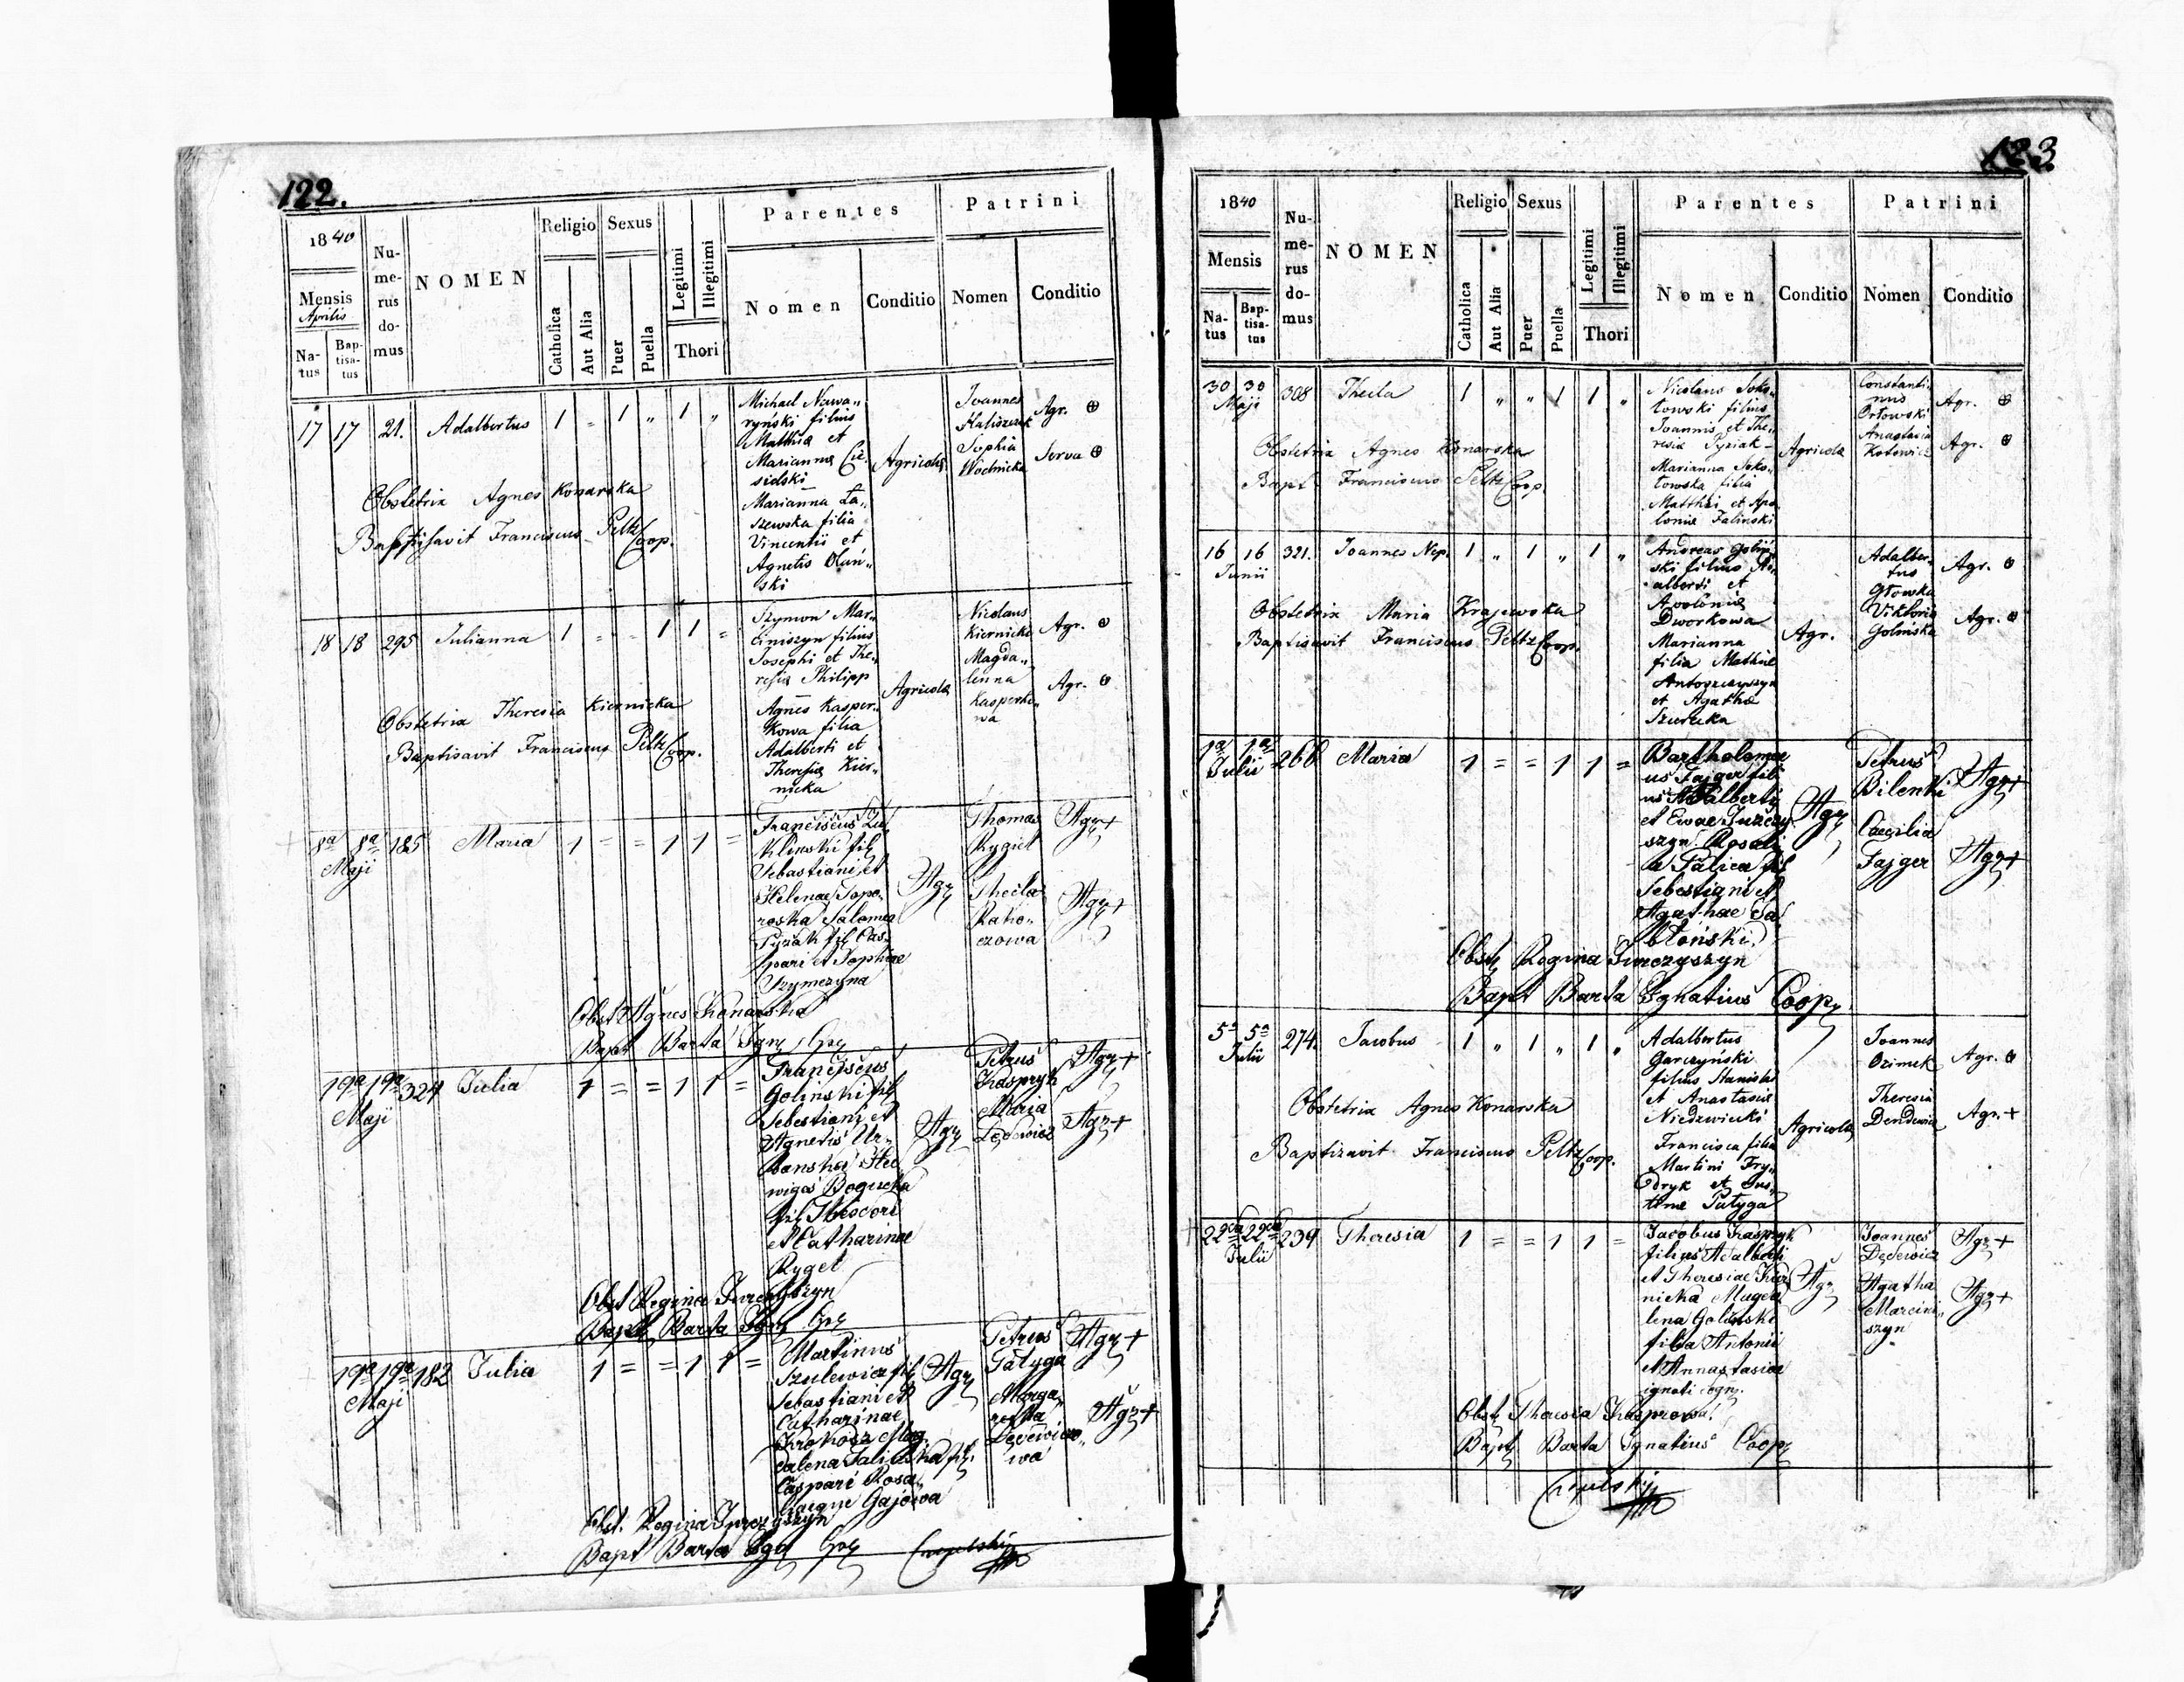 122.
1840
Mensis
Aprilis
Natus
Baptisatus
Numerus domus
NOMEN
Religio
Catholica
Aut Alia
Sexus
Puer
Puella
Legitimi
Illegitimi
Thori
Parentes
Nomen
Conditio
Patrini
Nomen
Conditio
17 17 21. Adalbertus 1 „ 1 „ 1 „
Michael Nawa„
ryński filius
Matthiæ et
Mariannæ
sidski
Marianna La„
szewska filia
Vincentii et
Agnetis
ski
Agricolæ
Joannes
Sophia
Agr.
Serva
Obstetrix Agnes Konarska
Baptisavit Franciscus Peltz Coop.
18 18 295 Julianna 1 „ „ 1 1 „
Szymon Mar„
ciniszyn filius
Josephi et The„
resiæ Philipp
Agnes Kasper„
kowa filia
Adalberti et
Theresiæ Kier„
nicka
Agricolæ
Nicolaus
Kiernicki
Magda„
lenna
Kasperko„
wa
Agr.
Agr.
Obstetrix Theresia Kiernicka
Baptisavit Franciscus Peltz Coop.
8a 8a 185 Maria 1 = = 1 1 =
Maji
Franciscus
Sebastiani et
Helenae Topo„
roska Salomea
Pyziak fil Cas„
pari et Sophiae
Szymczyna
Agr
Thomas
Rygiel
Thecla
Agr +
Agr +
Obst Agnes Konarska
Bapt Barta Ign Coop
19a 19a 324 Julia 1 = = 1 1 =
Maji
Franciscus
Golinski fil
Sebestiani et
Agnetis Ur„
banska Hed
wigas Bogucka
fil Theodori
et Catharinae
Rygel
Agr
Petrus
Kaspryk
Maria
Dędewicz
Agr +
Agr +
Obst Regina Jurczyszyn
Bapt Barta Ign Coop
19a 19a 182 Julia 1 = = 1 1 =
Maji
Martinus
Szulewicz fil
Sebastiani et
Catharinae
Krokosz Mag„
dalena
Caspari Rosa„
liaeque Gajowa
Agr
Petrus
Patyga
Marga
retta
Dędewiczo„
wa
Agr +
Agr +
Obst. Regina Jurczyszyn
Bapt Barta Ign Coop
123
1840
Mensis
Natus
Baptisatus
Numerus domus
NOMEN
Religio
Catholica
Aut Alia
Sexus
Puer
Puella
Legitimi
Illegitimi
Thori
Parentes
Nomen
Conditio
Patrini
Nomen
Conditio
30 30 308 Thecla 1 „ „ 1 1 „
Maji
Nicolaus Soko„
łowski filius
Joannis et The„
resiæ Pyziak
Marianna Soko„
łowska filia
Matthæi et Apo„
loniæ Falinski
Agricolæ
Constanti„
nus
Orłowski
Anastasia
Kotowicz
Agr.
Agr.
Obstetrix Agnes Konarska
Bapt Franciscus Peltz Coop
16 16 321. Joannes Nep. 1 „ 1 „ 1 „
Junii
Andreas Goliń„
ski filius Ad„
alberti et
Apoloniæ
Dworkowa
Marianna
filia Mathiæ
Antoszczyszyn
et Agathæ
Szurucka
Agr.
Adalber„
tus
Głowska
Viktoria
Golińska
Agr.
Agr.
Obstetrix Maria Krajewska
Baptisavit Franciscus Peltz Coop.
1a 1a 266 Maria 1 = = 1 1 =
Julii
Bartholomae
us Fajger fili
us Adalberti
et Evae Jurczy
szyn Rosali
a Palica fil
Sebestiani et
Agathae Ja
błoński
Agr
Petrus
Bilenki
Caecilia
Fajger
Agr +
Agr +
Obst Regina Jurczyszyn
Bapt Barta Ignatius Coop
5a 5a 274. Jacobus 1 „ 1 „ 1 „
Julii
Adalbertus
Garczyński
filius Stanislai
et Anastasiæ
Niedzwiecki
Francisca filia
Martini Fry„
dryk et Jus„
tinæ Patyga
Agricolæ
Joannes
Ozimek
Theresia
Dendewicz
Agr.
Agr. +
Obstetrix Agnes Konarska
Baptizavit Franciscus Peltz Coop.
22 22 239 Theresia 1 = = 1 1 =
Julii
Jacobus Kaspryk
filius Adalberti
et Theresiae Kier
nicka Magda
lena Golinski
filia Antonii
et Annastasiae
ignoti cogn.
Agr
Joannes
Dędewicz
Agatha
Marcini„
szyn
Agr +
Agr +
Obst Theresia Kasprowa
Bapt Barta Ignatius Coop